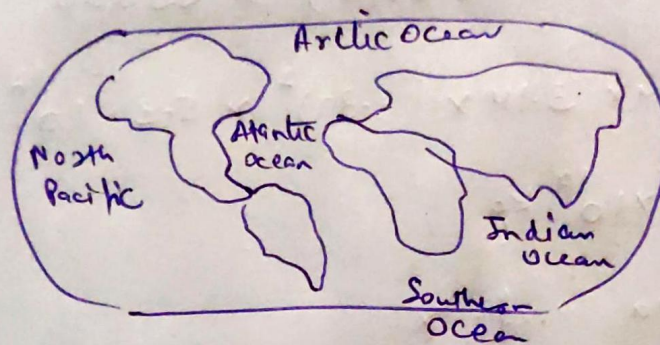 Arctic Ocean
North
Pacific
Atantic
Ocean
Indian
Ocean
Southern
Ocean